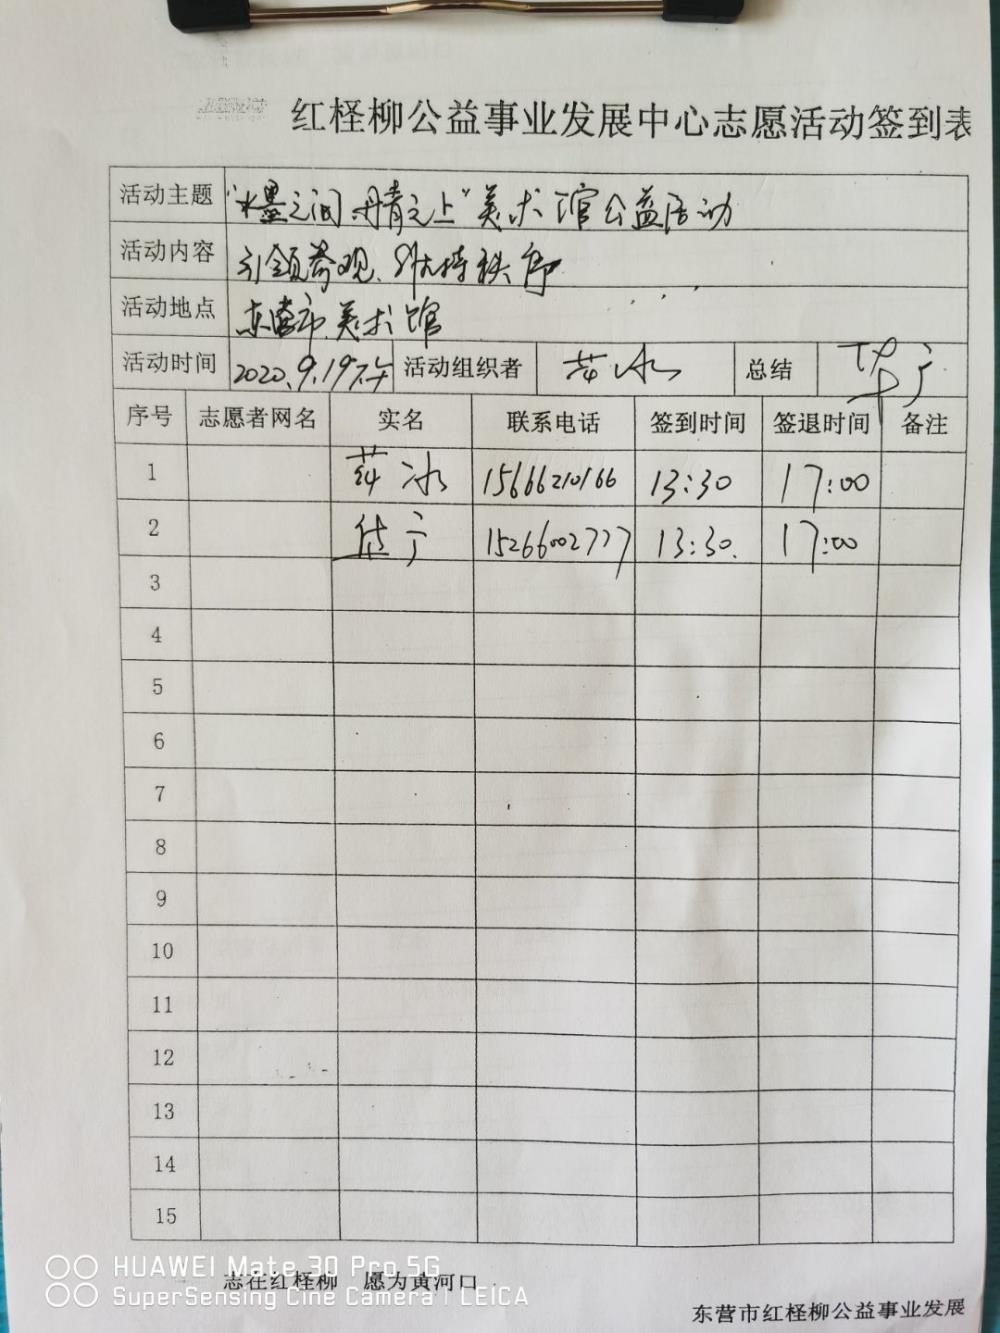 红柽柳公益事业发展中心志愿活动签到表
活动主题 "水墨之间 丹青之上"美术馆公益活动
活动内容 引领参观、维持秩序
活动地点 东营市美术馆
活动时间 2020.9.19下午 活动组织者 冰 总结
序号 志愿者网名 实名 联系电话 签到时间 签退时间 备注
1 冰 15666210166 13:30 17:00
2 15266002777 13:30. 17:00
3
4
5
6
7
8
9
10
11
12
13
14
15
志在红柽柳 愿为黄河口
东营市红柽柳公益事业发展
HUAWEI Mate 30 Pro 5G
SuperSensing Cine Camera | LEICA